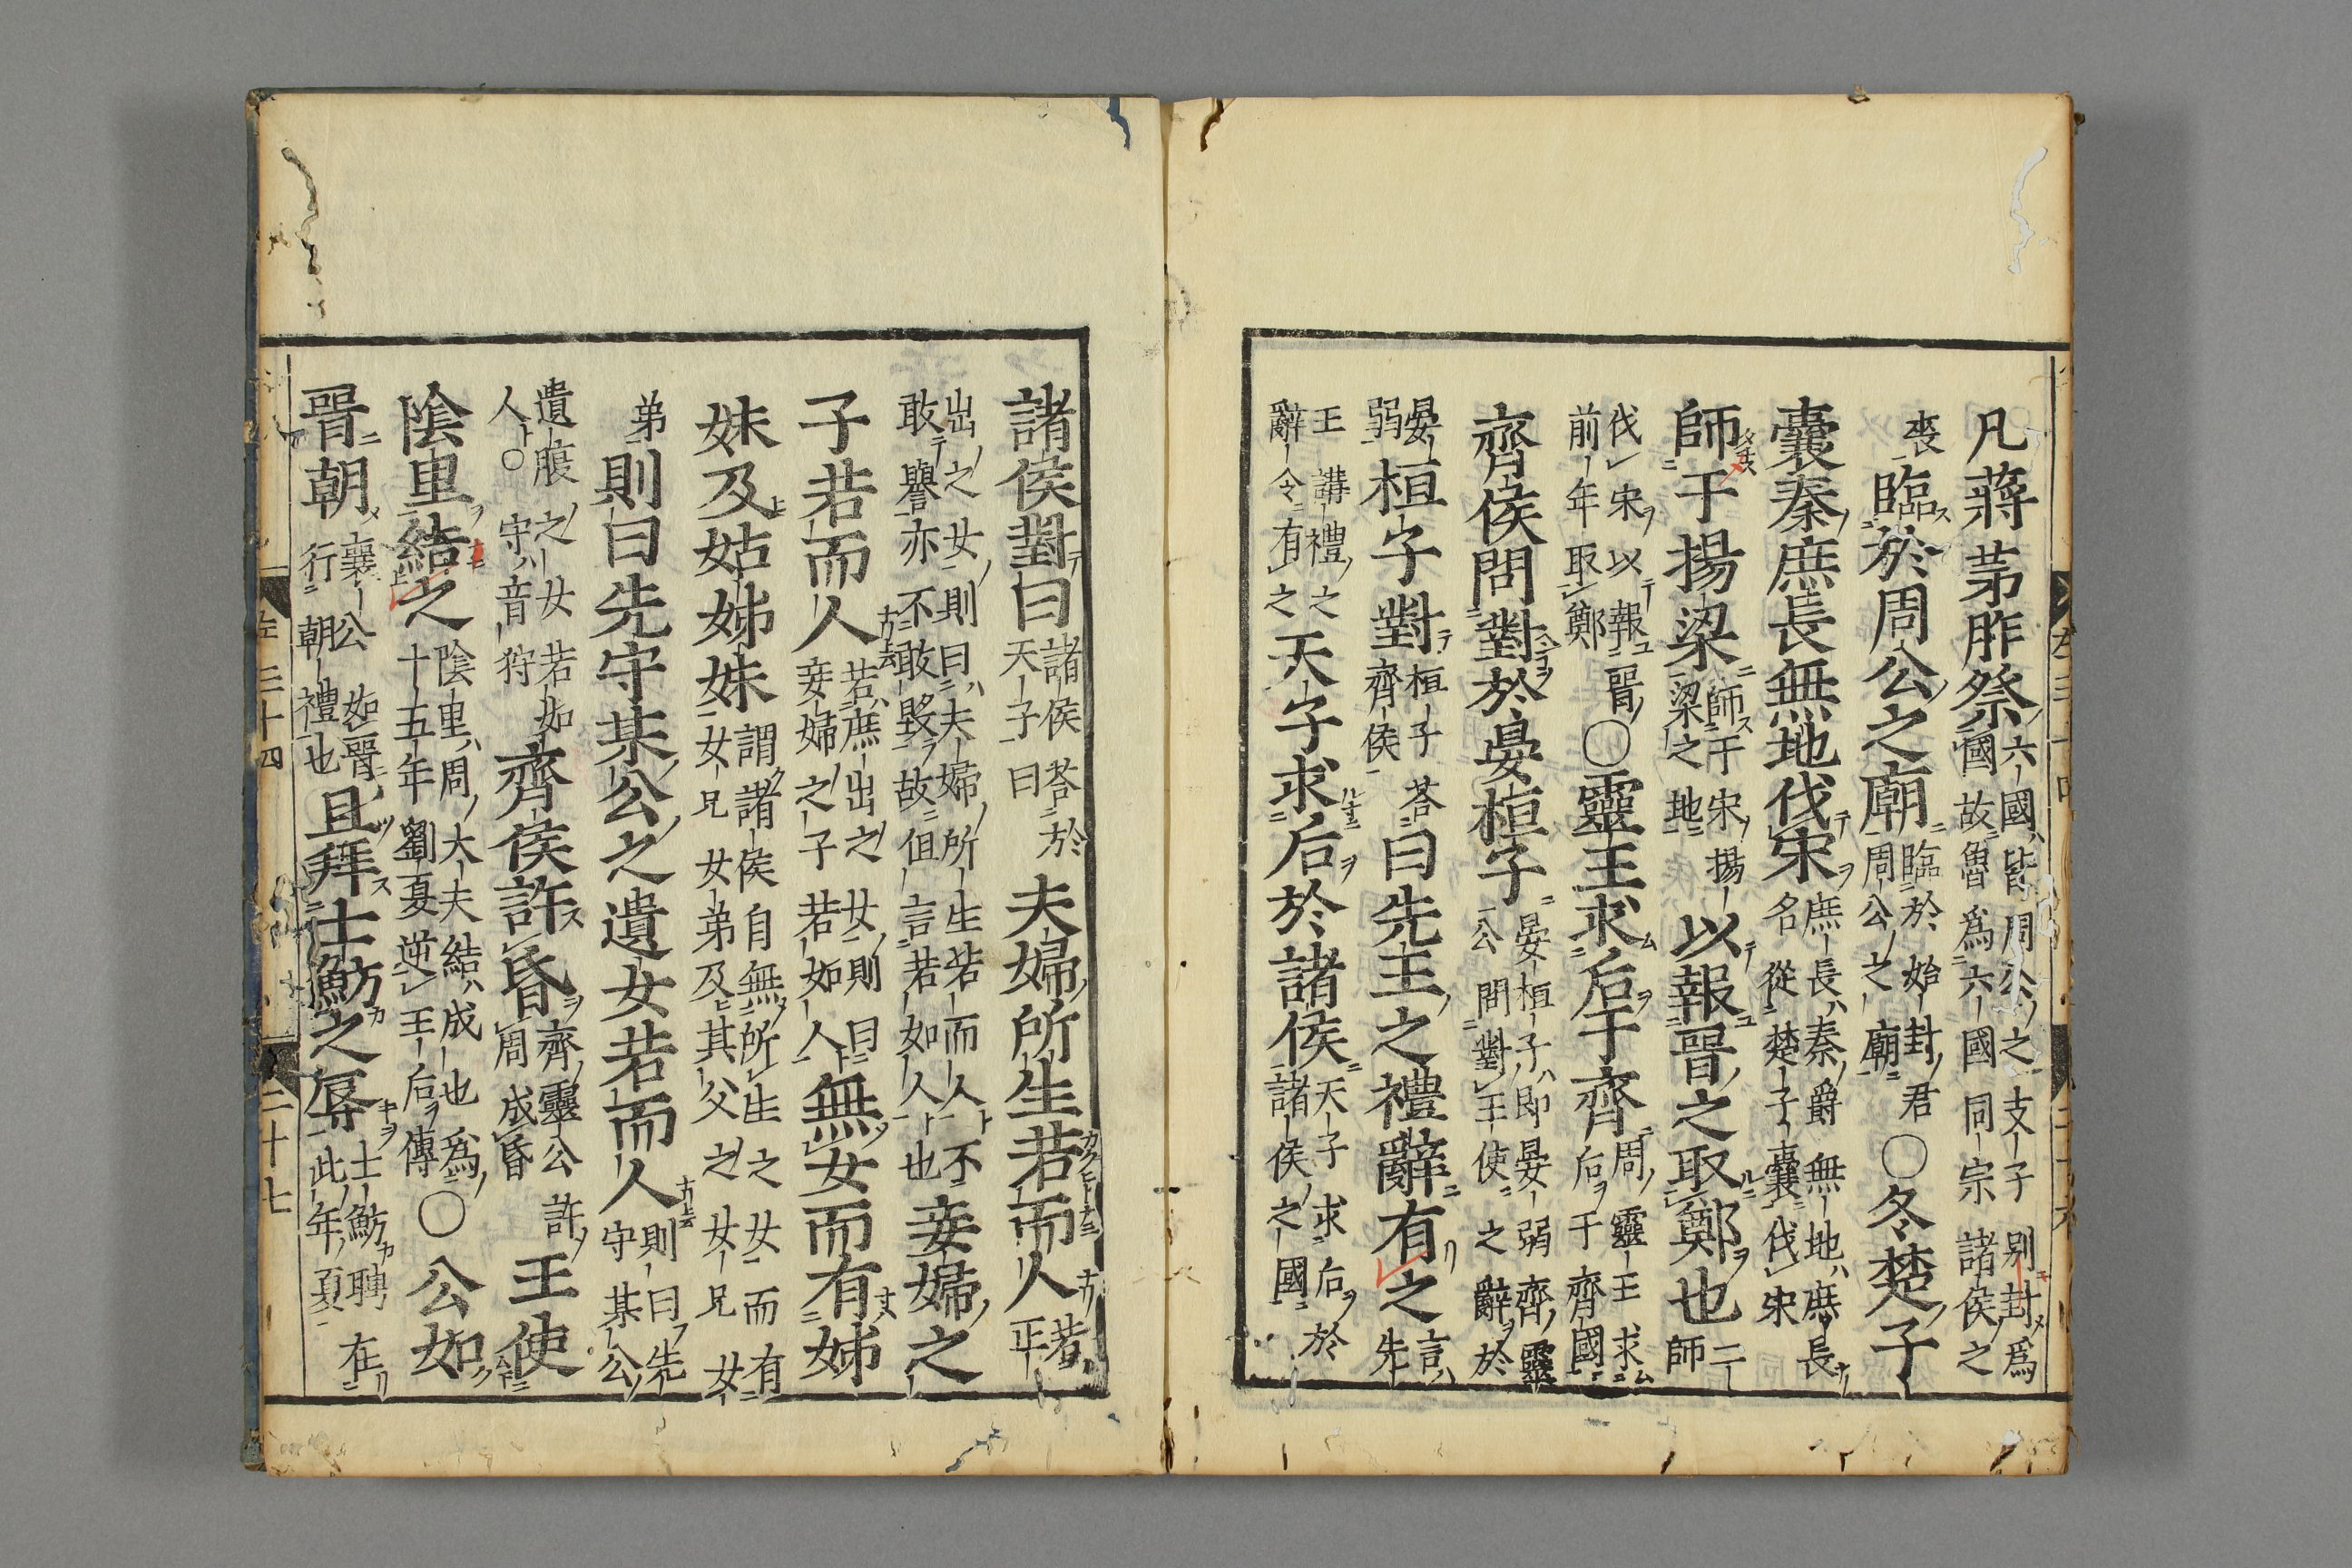 凡蔣茅胙祭六國皆周公之支子別封爲國故魯爲六國同宗諸侯之
喪臨於周公之廟臨於始封君周公之廟○冬楚子
囊秦庶長無地伐宋庶長秦爵無地庶長名從楚子囊伐宋
師于揚梁師于宋揚梁之地以報晉之取鄭也二師
伐宋以報晉前年取鄭○靈王求后于齊周靈王求后于齊國
齊侯問對於晏桓子晏桓子即晏弱齊靈公問對王使之辭於
晏弱桓子對桓子荅齊侯曰先王之禮辭有之言先
王講禮辭令有之天子求后於諸侯天子求后於諸侯之國
諸侯對曰諸侯荅於天子曰夫婦所生若而人若正
出之女則曰夫婦所生若而人不敢譽亦不敢毀故但言若如人也妾婦之
子若而人若庶出之女則曰妾婦之子若如人無女而有姊
妹及姑姊妹謂諸侯自無所生之女而有女兄女弟及其父之女兄女
弟則曰先守某公之遺女若而人則曰先守某公
遺腹之女若如人○守音狩齊侯許昏齊靈公許周成昏王使
陰里結之陰里周大夫結成也爲十五年劉夏逆王后傳○公如
晉朝襄公如晉行朝禮也且拜士魴之辱士魴聘在此年夏
左三十四
二十七